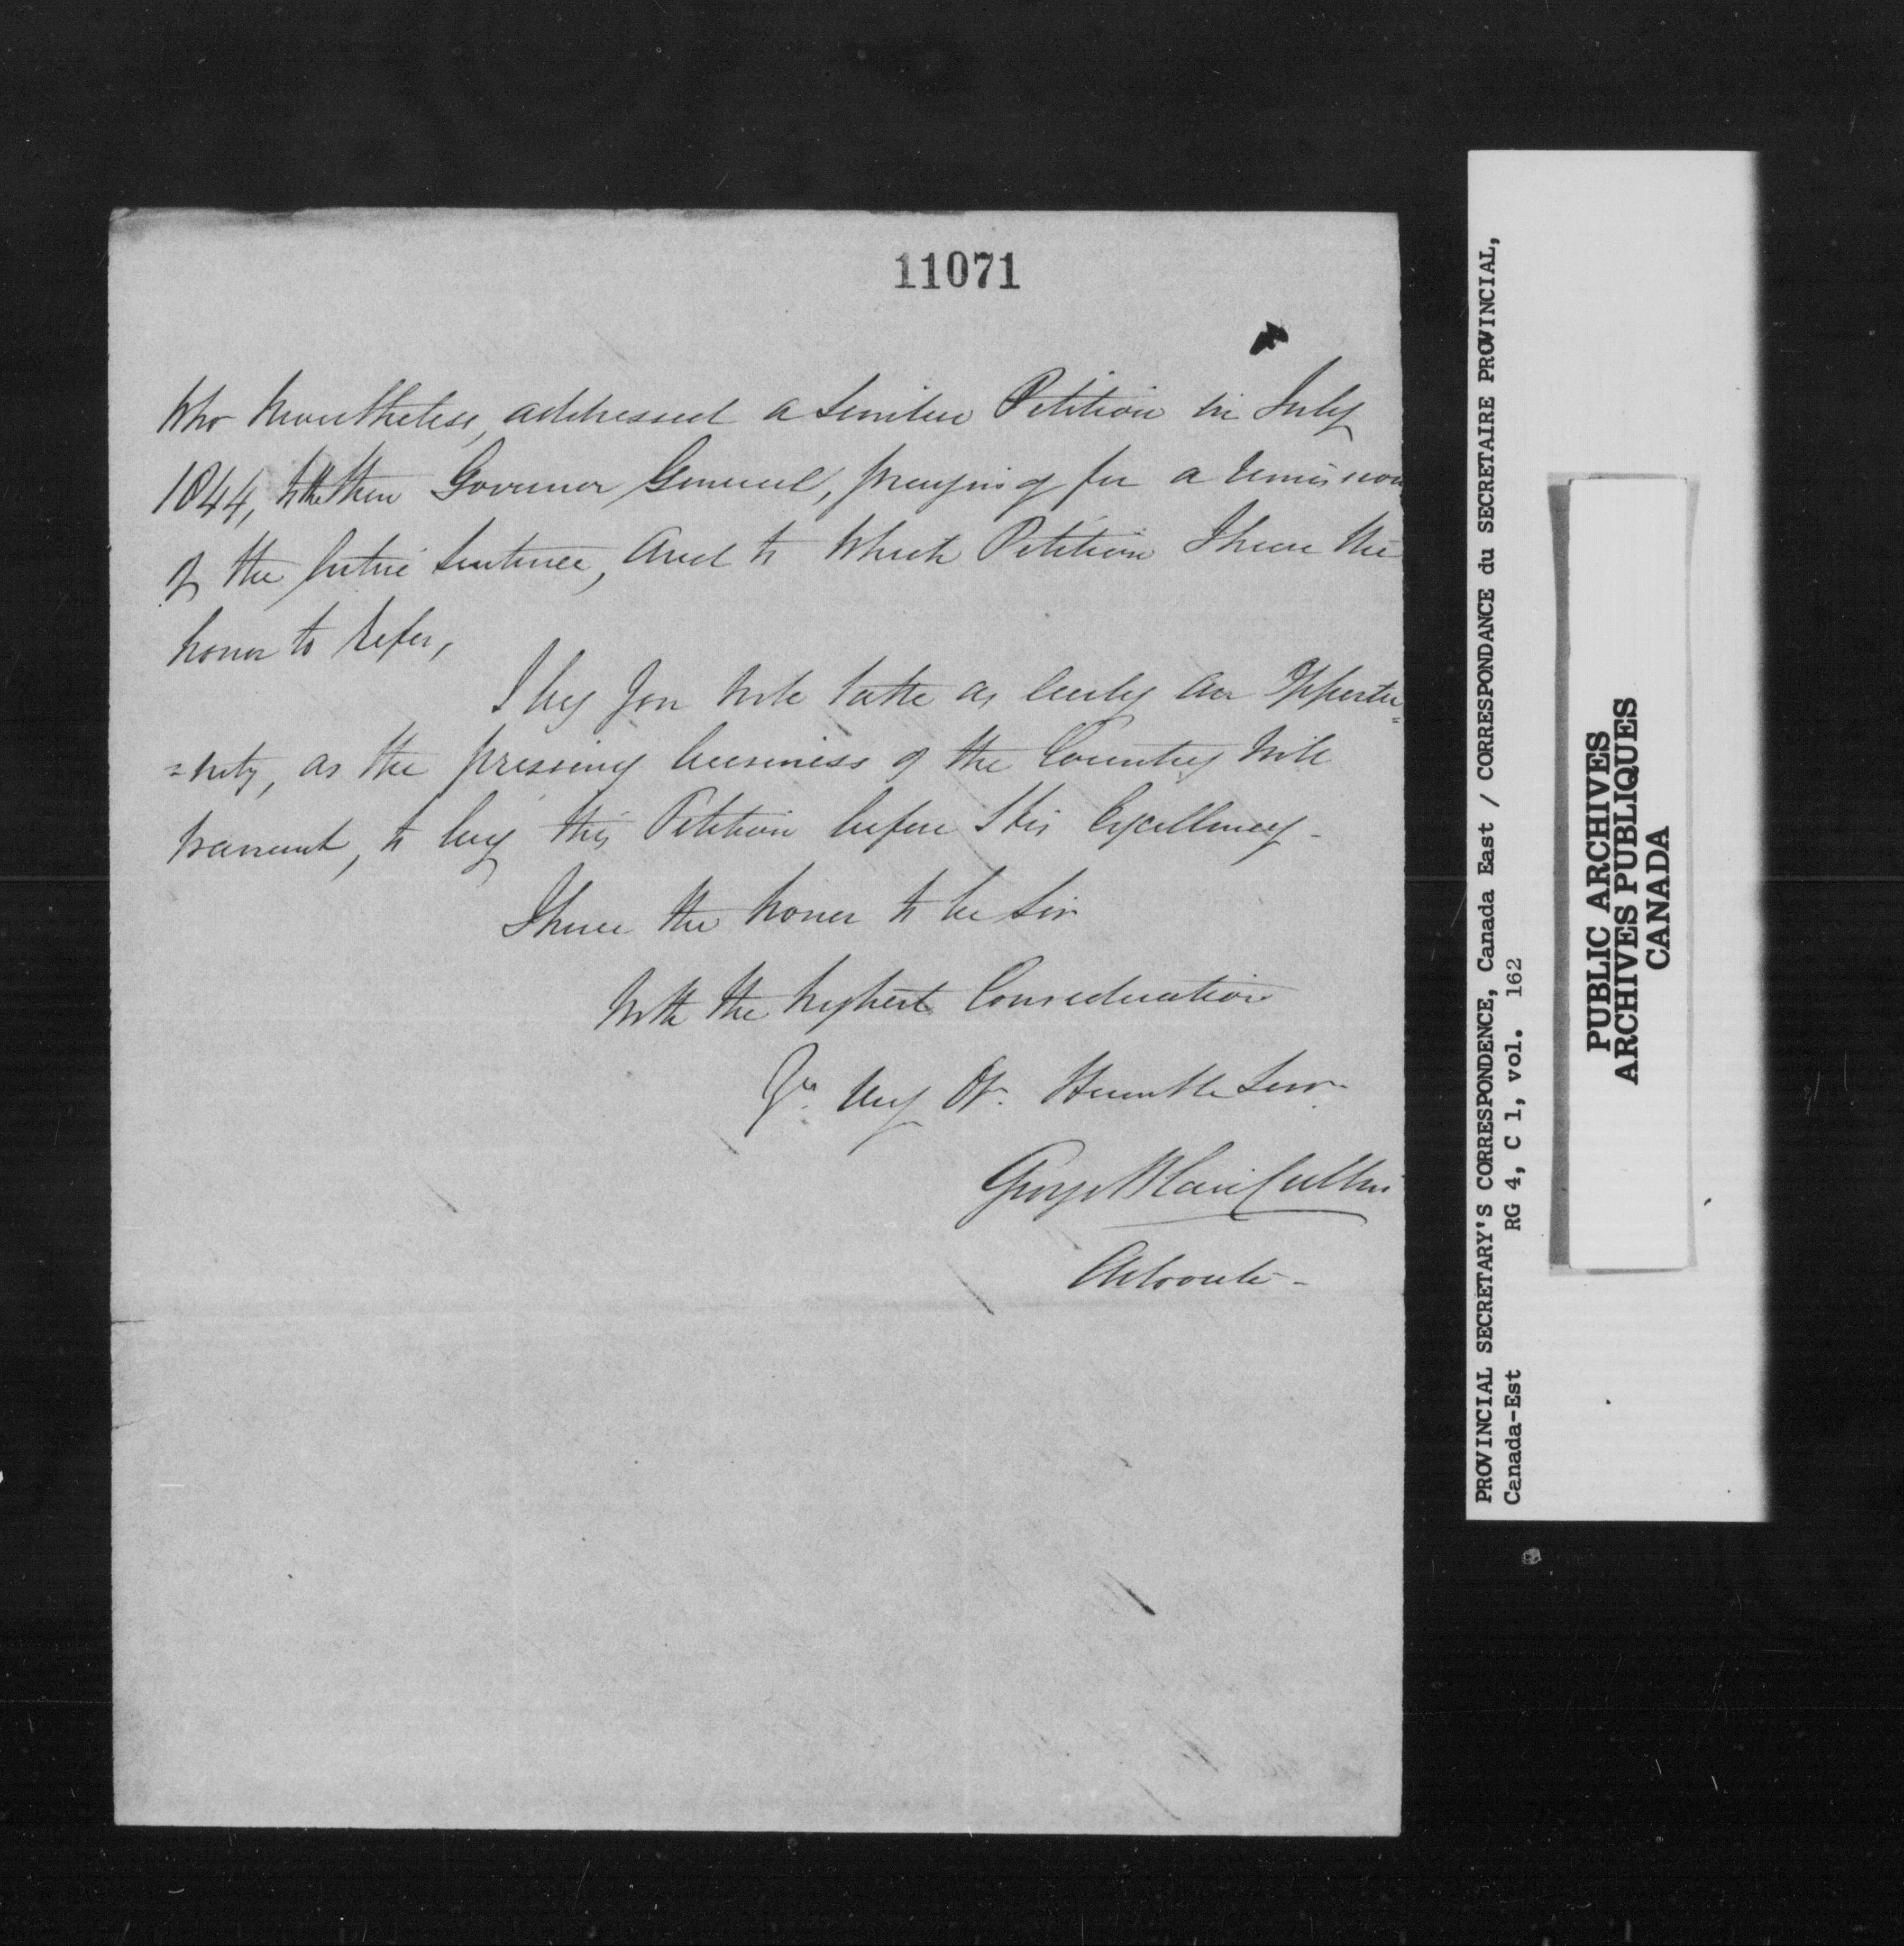 11071
Who Nevertheless, addressed a Similar Petition in July
1844, to the then Governor General, praying for a remission
of the entire Sentence, And to Which Petition I have the
honor to Refer,
I beg you will take as early an Opportu=
=nity, as the pressing business of the Country will
warrant, to lay this Petition before His Excellency -
I have the honor to be Sir
With the highest Consideration
Yr. Very Ob. Humble Serv.
George
Advocate -
PROVINCIAL SECRETARY'S CORRESPONDENCE, Canada East / CORRESPONDANCE du SECRETAIRE PROVINCIAL,
Canada-Est RG 4, C 1, vol. 162
PUBLIC ARCHIVES
ARCHIVES PUBLIQUES
CANADA